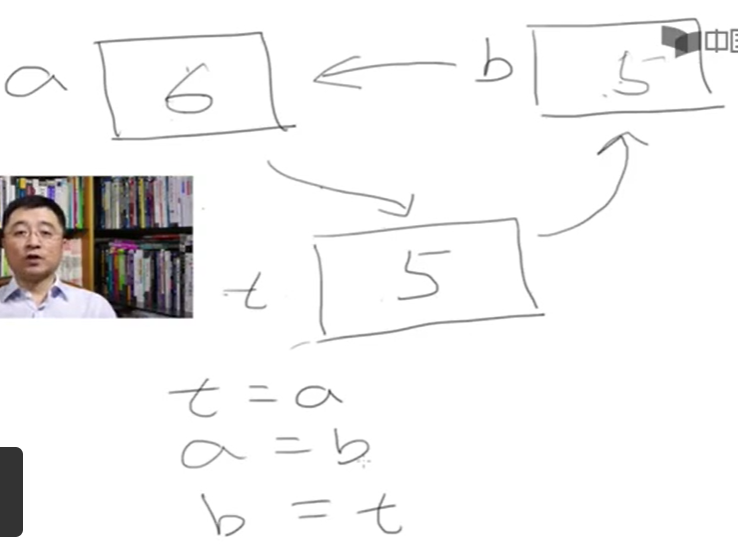 a 6 b 5 中国
t 5
t = a
a = b
b = t